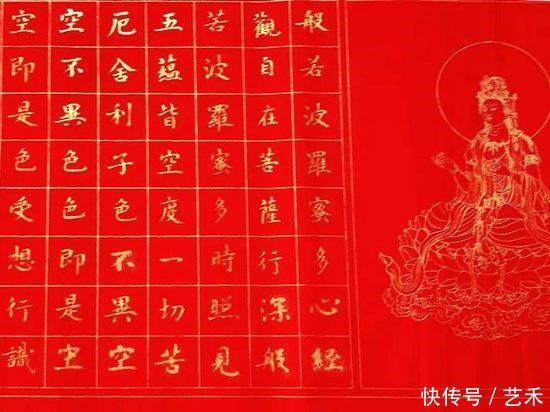 般若波羅蜜多心經
觀自在菩薩行深般
若波羅蜜多時照見
五蘊皆空度一切苦
厄舍利子色不異空
空不異色色即是空
空即是色受想行識
快传号/艺禾